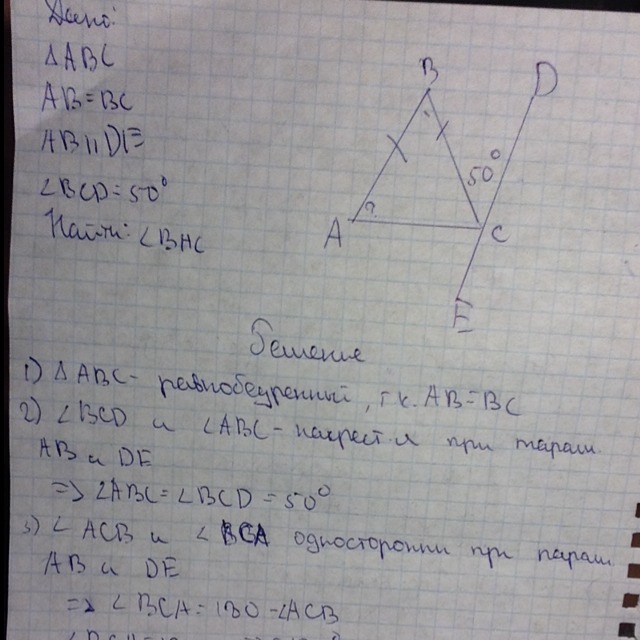 Дано:
ΔABC
AB=BC
AB||DE
∠BCD=50°
Найти: ∠BAC
B
D
50°
?
A
C
E
Решение
1) ΔABC - равнобедренный, т.к. AB=BC
2) ∠BCD и ∠ABC - накрест л при парал
AB и DE
=> ∠ABC=∠BCD=50°
3) ∠ACB и ∠BCA односторонни при парал
AB и DE
=> ∠BCA=180-∠ACB